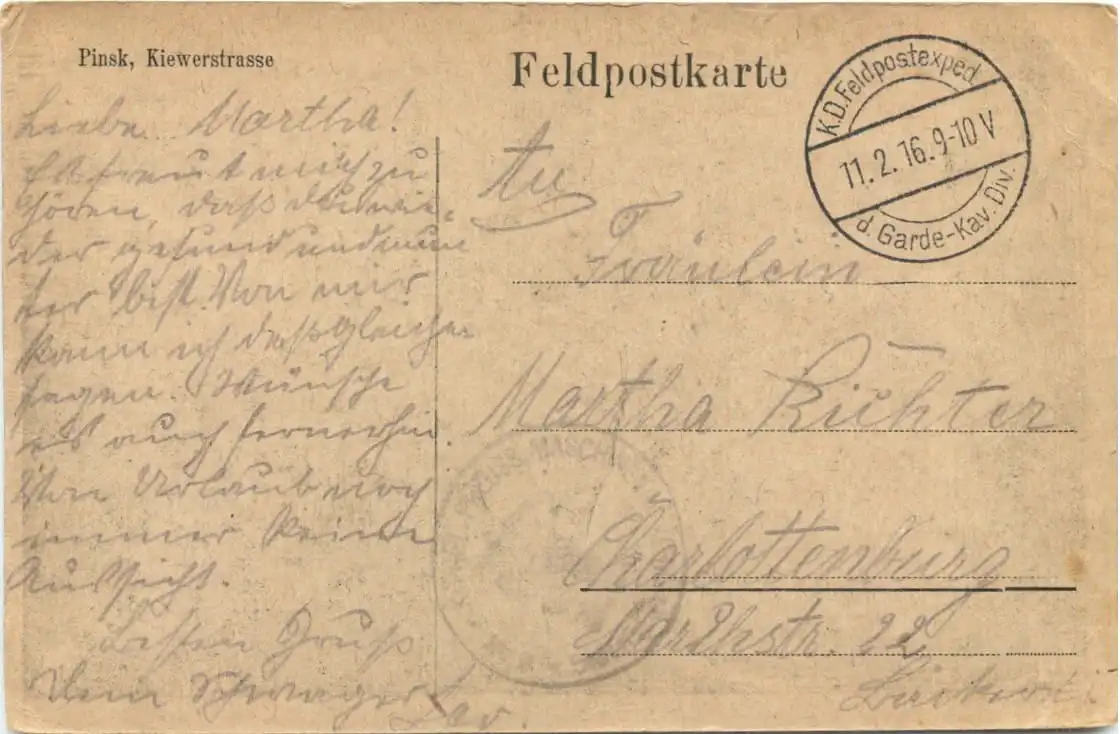 Pinsk, Kiewerstrasse
Feldpostkarte
K.D. Feldpostexped.
11. 2. 16. 9-10 V
d. Garde-Kav. Div.
Liebe Martha!
Es freut mich zu
hören, daß du wie-
der gesund und mun
ter bist. Von mir
kann ich daßgleiche
sagen. Wünsche
es auch fernerhin.
Von Urlaub noch
immer keine
Aussicht.
Besten Gruß
Dein Schwager
An
Fräulein
Martha Richter
Charlottenburg
22
MASCH